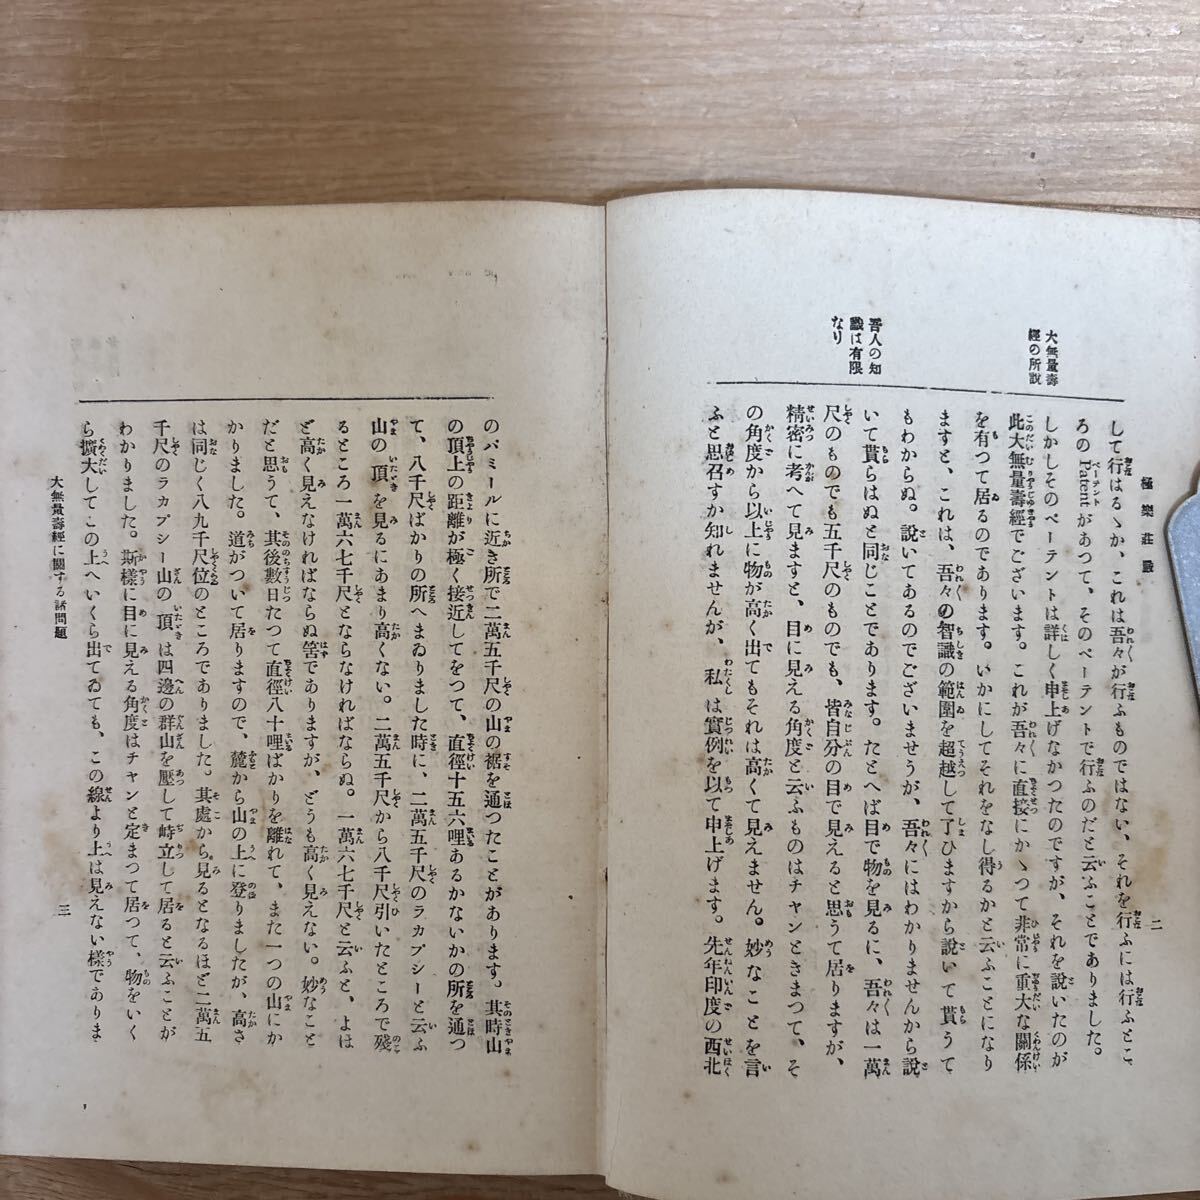 極樂莊嚴
二
大無量壽
經の所說
吾人の知
識は有限
なり
して行はるゝか、これは吾々が行ふものではない、それを行ふには行ふとこ
ろのPatentがあつて、そのペーテントで行ふのだと云ふことでありました。
しかしそのペーテントは詳しく申上げなかつたのですが、それを說いたのが
此大無量壽經でございます。これが吾々に直接にかゝつて非常に重大な關係
を有つて居るのであります。いかにしてそれをなし得るかと云ふことになり
ますと、これは、吾々の智識の範圍を超越して了ひますから說いて貰うて
もわからぬ。說いてあるのでございませうが、吾々にはわかりませんから說
いて貰らはぬと同じことであります。たとへば目で物を見るに、吾々は一萬
尺のものでも五千尺のものでも、皆自分の目で見えると思うて居りますが、
精密に考へて見ますと、目に見える角度と云ふものはチャンときまつて、そ
の角度から以上に物が高く出てもそれは高くて見えません。妙なことを言
ふと思召すか知れませんが、私は實例を以て申上げます。先年印度の西北
のパミールに近き所で二萬五千尺の山の裾を通つたことがあります。其時山
の頂上の距離が極く接近してをつて、直徑十五六哩あるかないかの所を通つ
て、八千尺ばかりの所へまゐりました時に、二萬五千尺のラカプシーと云ふ
山の頂を見るにあまり高くない。二萬五千尺から八千尺引いたところで殘
るところ一萬六七千尺とならなければならぬ。一萬六七千尺と云ふと、よほ
ど高く見えなければならぬ筈でありますが、どうも高く見えない。妙なこと
だと思うて、其後數日たつて直徑八十哩ばかりを離れて、また一つの山にか
かりました。道がついて居りますので、麓から山の上に登りましたが、高さ
は同じく八九千尺位のところでありました。其處から見るとなるほど二萬五
千尺のラカプシー山の頂は四邊の群山を壓して峙立して居ると云ふことが
わかりました。斯樣に目に見える角度はチャンと定まつて居つて、物をいく
ら擴大してこの上へいくら出てゐても、この線より上は見えない樣でありま
大無量壽經に關する諸問題
三